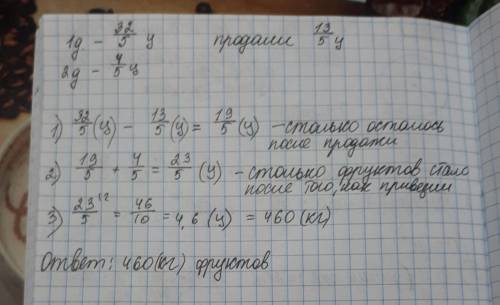 1д - 32/5 ц продали 13/5 ц
2д - 4/5 ц
1) 32/5 (ц) - 13/5 (ц) = 19/5 (ц) - столько осталось
после продажи
2) 19/5 + 4/5 = 23/5 (ц) - столько фруктов стало
после того, как привезли
3) 23/5 ^(2 = 46/10 = 4,6 (ц) = 460 (кг)
Ответ: 460(кг) фруктов